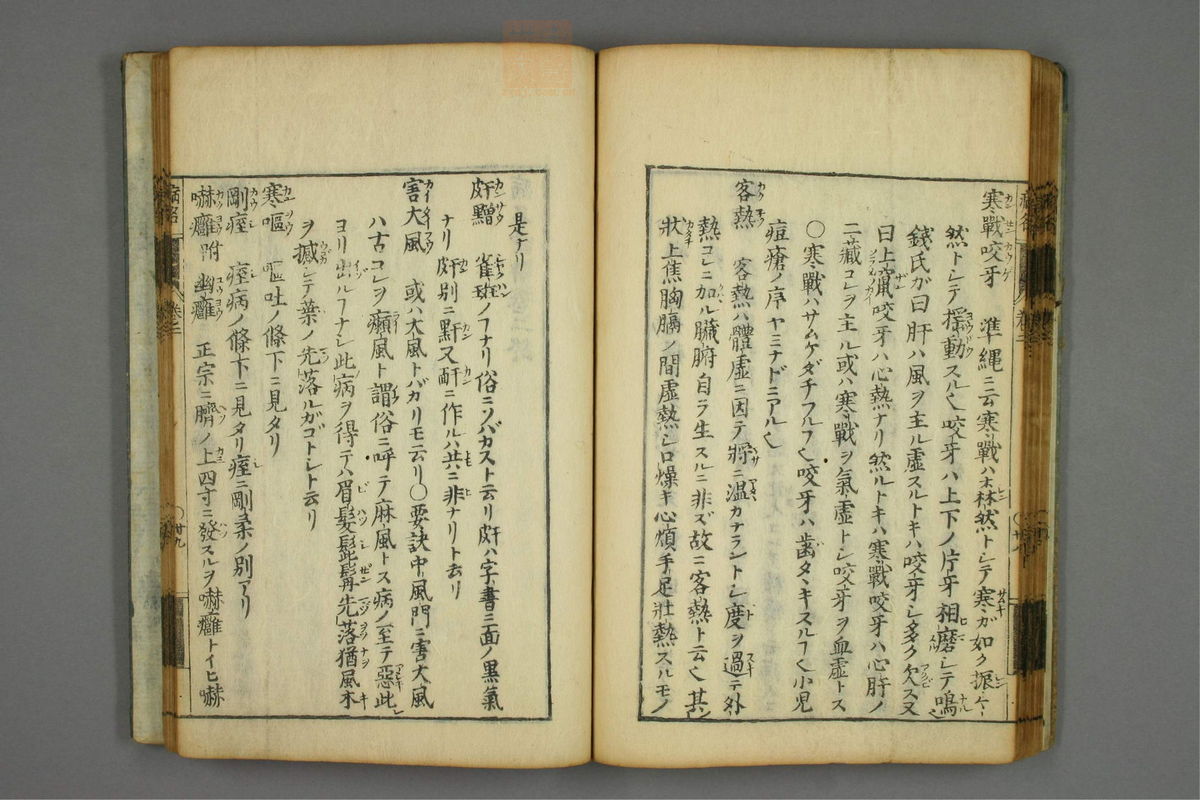 寒戰咬牙　準縄ニ云寒戰ハ森然トシテ寒ガ如ク振々
然トシテ揺動スル也咬牙ハ上下ノ片牙相磨シテ鳴
錢氏ガ曰肝ハ風ヲ主ル虚スルトキハ咬牙シ多ク欠ス又
曰上竄咬牙ハ心熱ナリ然ルトキハ寒戰咬牙ハ心肝ノ
二藏コレヲ主ル或ハ寒戰ヲ氣虚トシ咬牙ヲ血虚トス
〇寒戰ハサムケダチフルフ也咬牙ハ歯タヽキスルフ也小児
痘瘡ノ序ヤミナドニアル也
客熱　客熱ハ體虚ニ因テ將ニ温カナラントシ度ヲ過テ外
熱コレニ加ル臓腑自ラ生スルニ非ズ故ニ客熱ト云也其
状上焦胸膈ノ間虚熱シ口燥キ心煩手足壯熱スルモノ
是ナリ
皯䵴　雀斑ノフナリ俗ニソバカスト云リ皯ハ字書ニ面ノ黒氣
ナリ皯別ニ䵟又酐ニ作ルハ共ニ非ナリト云リ
害大風　或ハ大風トバカリモ云リ〇要訣中風門ニ害大風
ハ古コレヲ癩風ト謂俗ニ呼テ麻風トス病ノ至テ惡此
ヨリ出ルフナシ此病ヲ得テハ眉髮髭髯先落猶風木
ヲ撼シテ葉ノ先落ルガゴトシト云リ
寒嘔　嘔吐ノ條下ニ見タリ
剛痓　痓病ノ條下ニ見タリ痓ニ剛柔ノ別アリ
嚇癰附幽癰　正宗ニ臍ノ上四寸ニ發スルヲ嚇癰トイヒ嚇